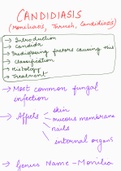 CANDIDIASIS
(Moniliasis, Thrush, Candidosis)
→ Introduction
→ Candida
→ Predisposing factors causing this
→ Classification
→ Histology
→ Treatment
→ Most common fungal
infection
→ Affects → skin
→ mucous membrane
→ nails
→ internal organs
→ Genus Name - Monilia